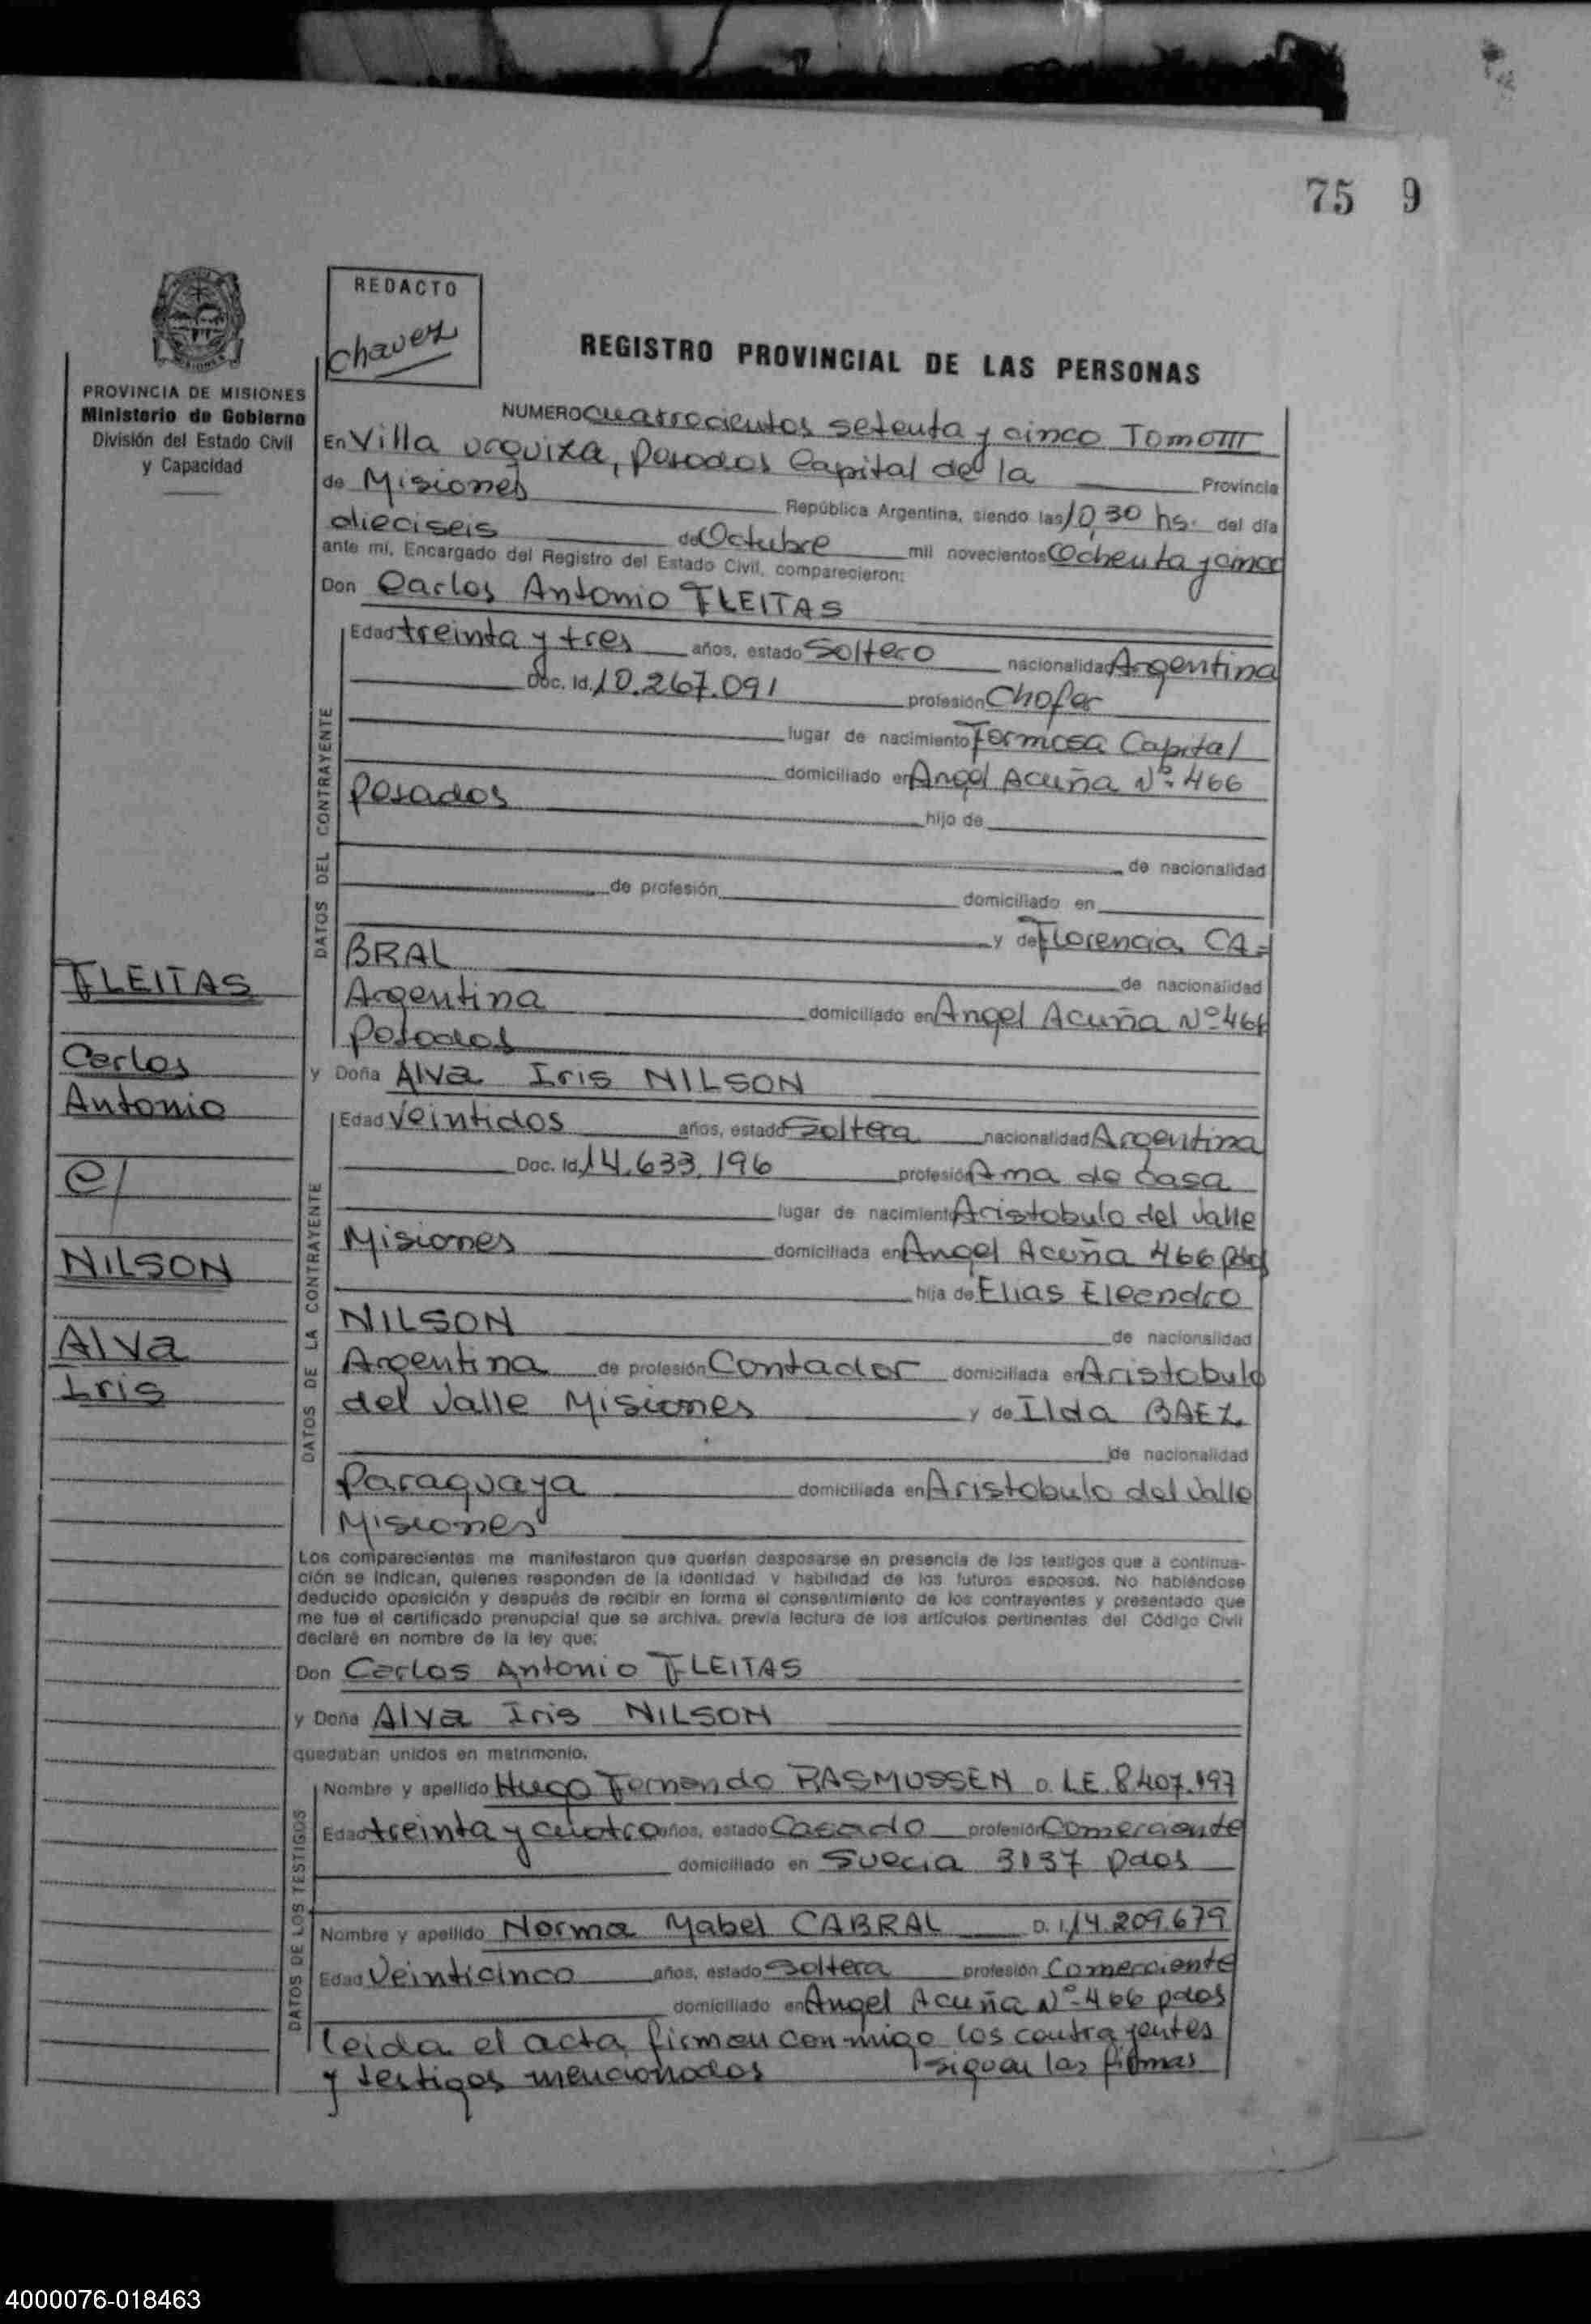 75 9
REDACTO
Chavez
REGISTRO PROVINCIAL DE LAS PERSONAS
PROVINCIA DE MISIONES
Ministerio de Gobierno
División del Estado Civil
y Capacidad
NUMERO cuatrocientos setenta y cinco Tomo III
En Villa Urquiza, Posadas Capital de la Provincia
de Misiones República Argentina, siendo las 10,30 hs. del día
dieciseis de Octubre mil novecientos Ochenta y cinco
ante mi, Encargado del Registro del Estado Civil, comparecieron:
Don Carlos Antonio FLEITAS
Edad treinta y tres años, estado Soltero nacionalidad Argentina
Doc. Id. 10.267.091 profesión Chofer
lugar de nacimiento Formosa Capital
domiciliado en Angel Acuña Nº 466
Posadas hijo de
de nacionalidad
de profesión domiciliado en
y de Florencia CA-
BRAL de nacionalidad
Argentina domiciliado en Angel Acuña Nº 466
Posadas
DATOS DEL CONTRAYENTE
FLEITAS
Carlos
Antonio
c/
NILSON
Alva
Iris
y Doña Alva Iris NILSON
Edad Veintidos años, estado Soltera nacionalidad Argentina
Doc. Id. 14.633.196 profesión Ama de Casa
lugar de nacimiento Aristobulo del Valle
Misiones domiciliada en Angel Acuña 466 pdas
hija de Elias Eleandro
NILSON de nacionalidad
Argentina de profesión Contador domiciliada en Aristobulo
del Valle Misiones y de Ilda BAEZ
de nacionalidad
Paraguaya domiciliada en Aristobulo del Valle
Misiones
DATOS DE LA CONTRAYENTE
Los comparecientes me manifestaron que querían desposarse en presencia de los testigos que a continua-
ción se indican, quienes responden de la identidad y habilidad de los futuros esposos. No habiéndose
deducido oposición y después de recibir en forma el consentimiento de los contrayentes y presentado que
me fue el certificado prenupcial que se archiva, previa lectura de los artículos pertinentes del Código Civil
declaré en nombre de la ley que:
Don Carlos Antonio FLEITAS
y Doña Alva Iris NILSON
quedaban unidos en matrimonio.
Nombre y apellido Hugo Fernando RASMUSSEN D. L.E. 8.407.197
Edad treinta y cuatro años, estado Casado profesión Comerciante
domiciliado en Suecia 3137 pdas
Nombre y apellido Norma Mabel CABRAL D. I. 14.209.679
Edad Veinticinco años, estado Soltera profesión Comerciante
domiciliado en Angel Acuña Nº 466 pdas
DATOS DE LOS TESTIGOS
leida el acta, firman conmigo los contrayentes
y testigos mencionados siguen las firmas
4000076-018463